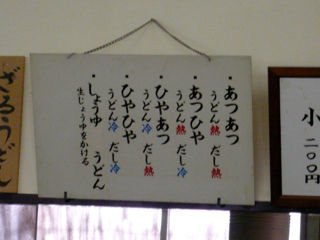 ・あつあつ
うどん熱 だし熱
・あつひや
うどん熱 だし冷
・ひやあつ
うどん冷 だし熱
・ひやひや
うどん冷 だし冷
・しょうゆ うどん
生じょうゆをかける
小
二〇〇円
ざるうどん